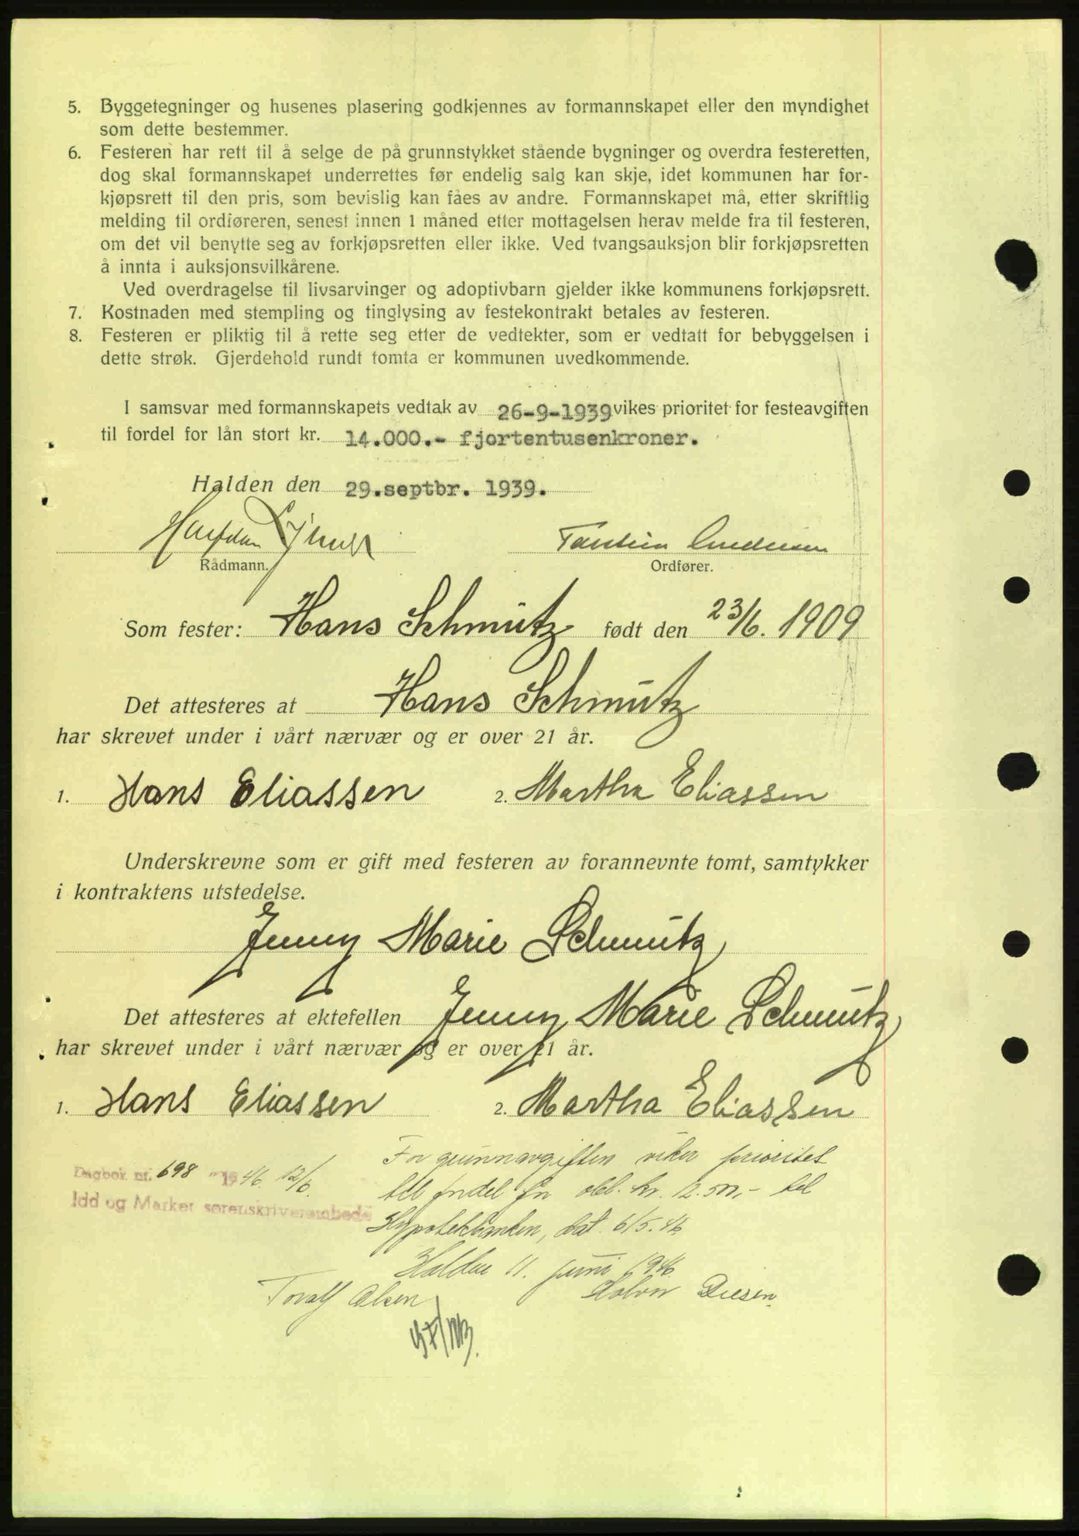 5. Byggetegninger og husenes plasering godkjennes av formannskapet eller den myndighet
som dette bestemmer.
6. Festeren har rett til å selge de på grunnstykket stående bygninger og overdra festeretten,
dog skal formannskapet underrettes før endelig salg kan skje, idet kommunen har for-
kjøpsrett til den pris, som bevislig kan fåes av andre. Formannskapet må, etter skriftlig
melding til ordføreren, senest innen 1 måned etter mottagelsen herav melde fra til festeren,
om det vil benytte seg av forkjøpsretten eller ikke. Ved tvangsauksjon blir forkjøpsretten
å innta i auksjonsvilkårene.
Ved overdragelse til livsarvinger og adoptivbarn gjelder ikke kommunens forkjøpsrett.
7. Kostnaden med stempling og tinglysing av festekontrakt betales av festeren.
8. Festeren er pliktig til å rette seg etter de vedtekter, som er vedtatt for bebyggelsen i
dette strøk. Gjerdehold rundt tomta er kommunen uvedkommende.
I samsvar med formannskapets vedtak av 26-9-1939 vikes prioritet for festeavgiften
til fordel for lån stort kr. 14.000.- fjortentusenkroner.
Halden den 29.septbr. 1939.
Rådmann. Ordfører.
Som fester: Hans Schmütz født den 23/6. 1909
Det attesteres at Hans Schmütz
har skrevet under i vårt nærvær og er over 21 år.
1. Hans Eliassen 2. Martha Eliassen
Underskrevne som er gift med festeren av forannevnte tomt, samtykker
i kontraktens utstedelse.
Jenny Marie Schmütz
Det attesteres at ektefellen Jenny Marie Schmütz
har skrevet under i vårt nærvær og er over 21 år.
1. Hans Eliassen 2. Martha Eliassen
For grunnavgiften viker prioritet
Dagbok nr. 698 1946 12/6
til fordel for obl. kr. 12.500,- til
Idd og Marker sorenskriverembede
Hypotekbanken, dat. 6/5.46
Halden 11. juni 1946
Toralf Olsen